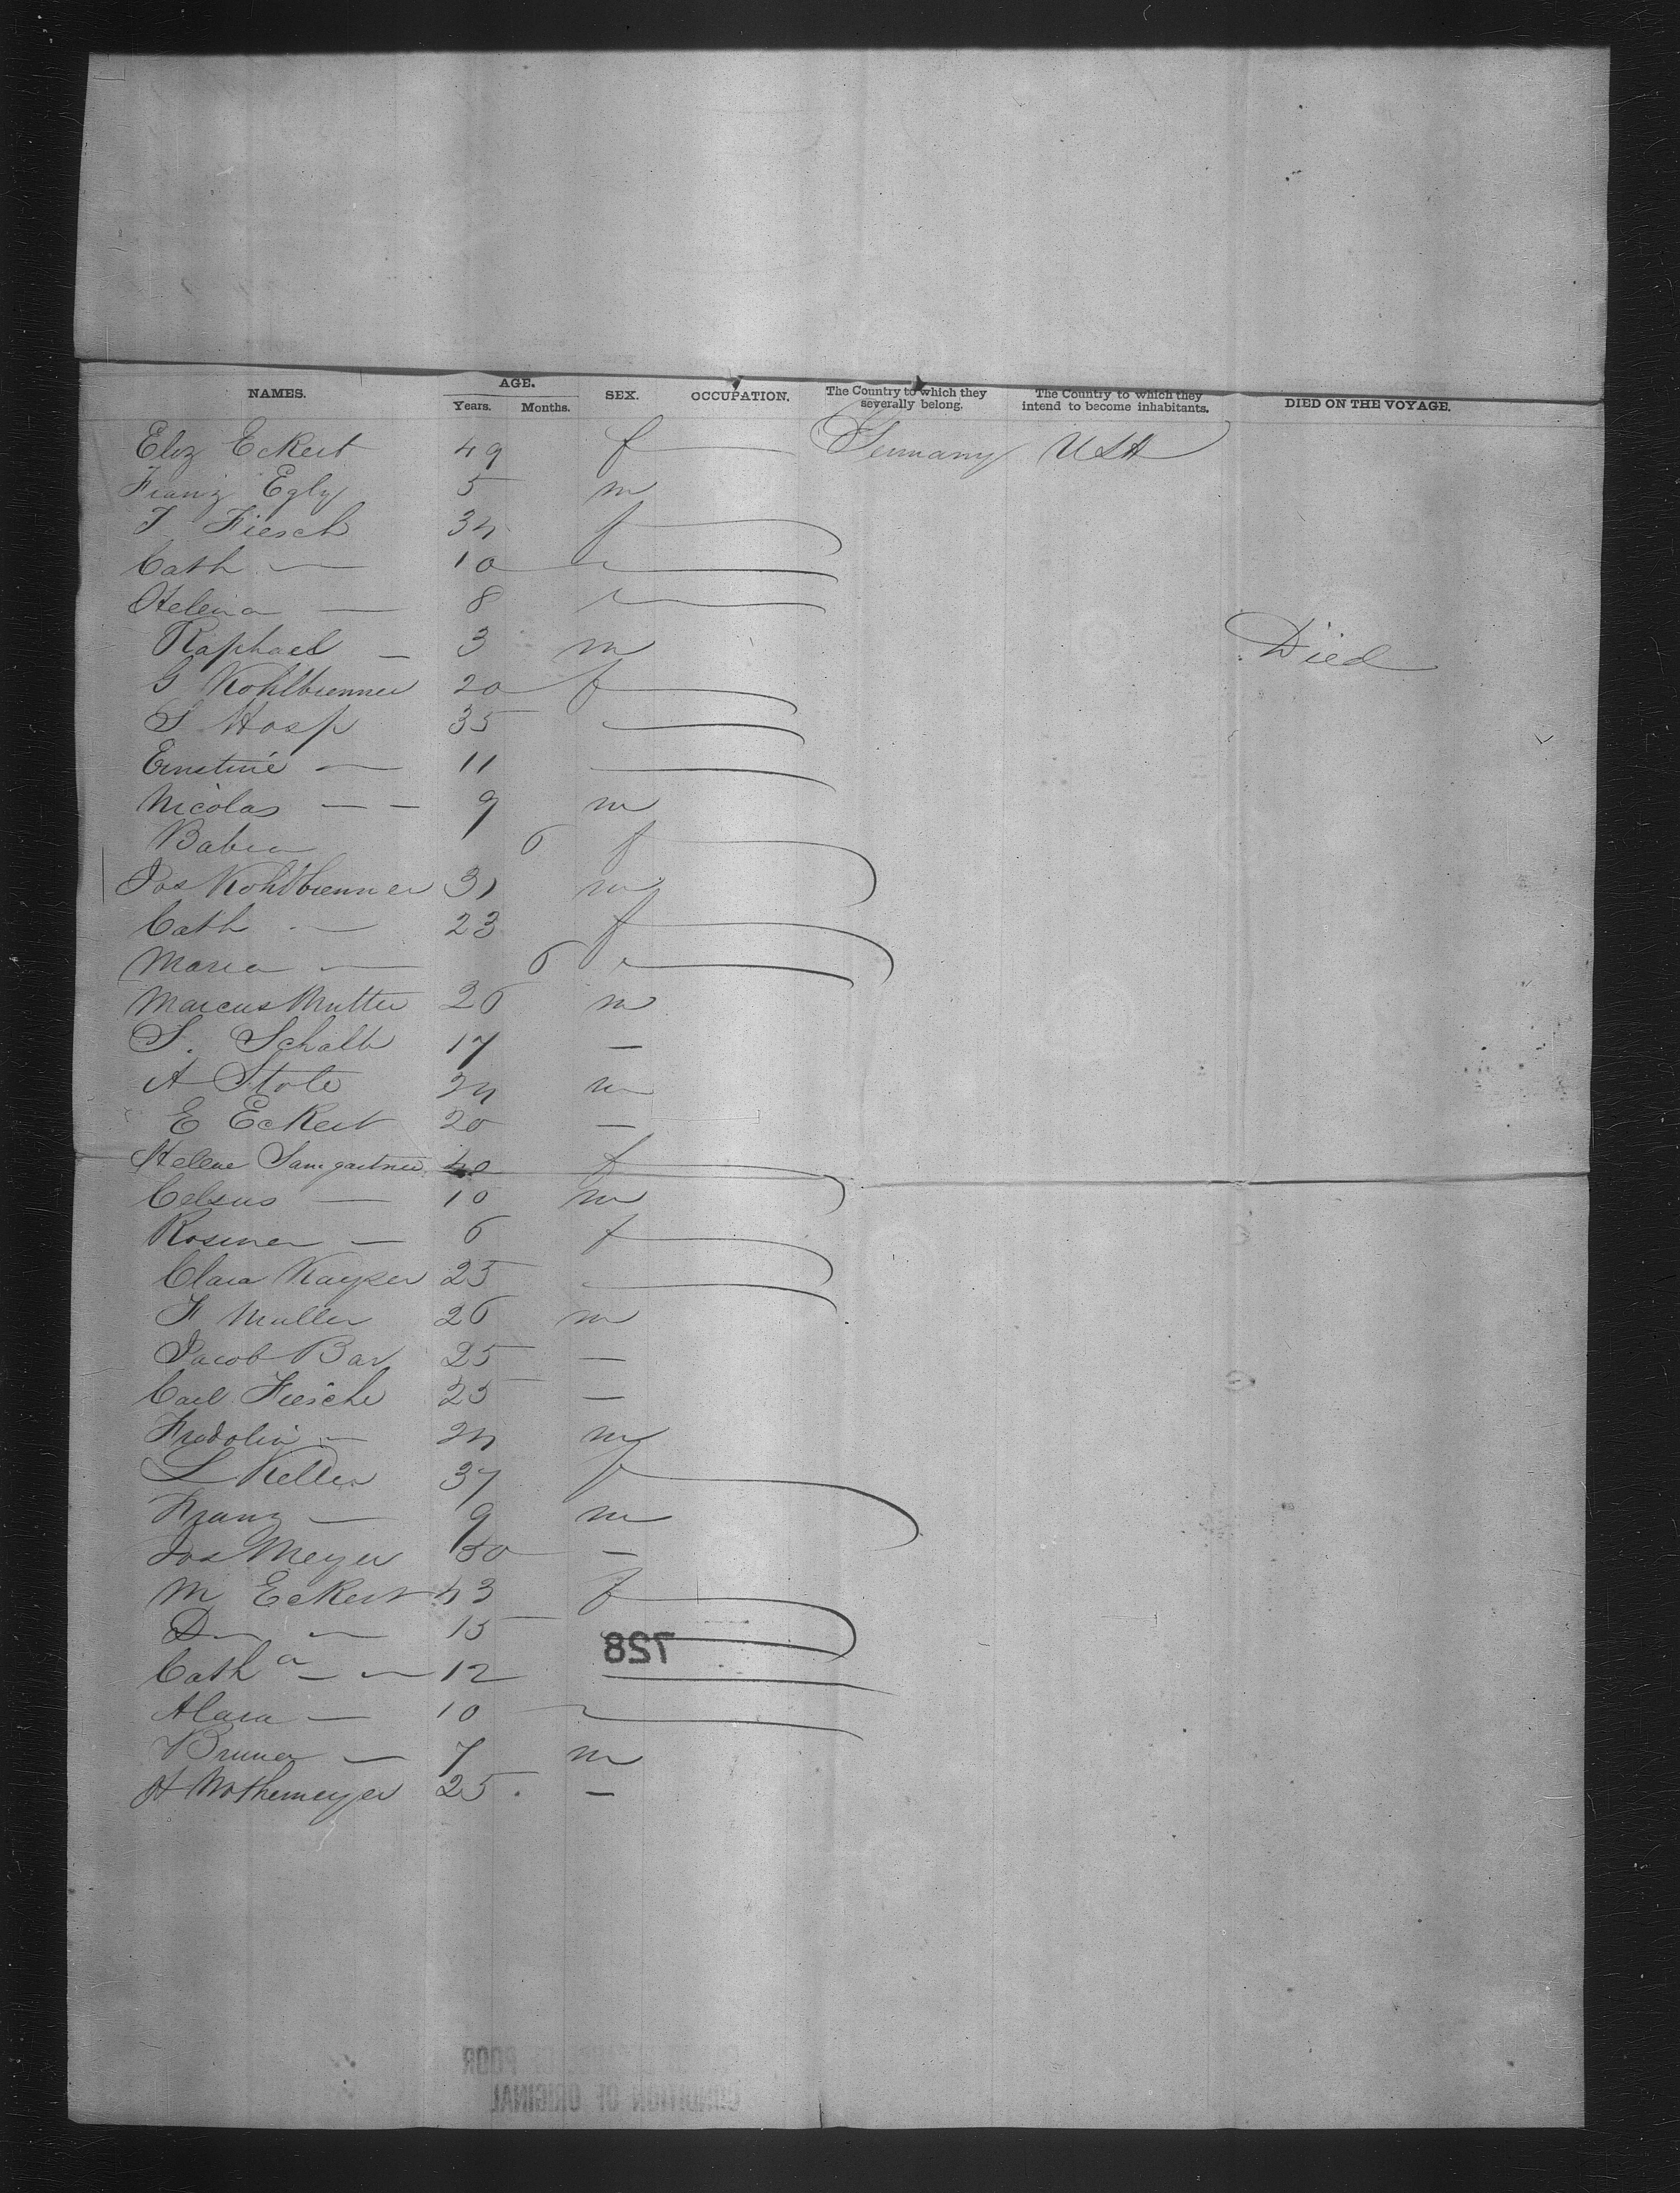 NAMES. AGE. Years. Months. SEX. OCCUPATION. The Country to which they severally belong. The Country to which they intend to become inhabitants. DIED ON THE VOYAGE.
Eliz Eckert 49 f Germany USA
Franz Egly 5 m
Fiesch 34 f
Cath — 10
Helena — 8
Raphael — 3 m Died
G Kohlbrenner 20 f
S Hosp 35
Ernstine — 11
Nicolas — — 9 m
6 f
Jos Kohlbrenner 31 m
Cath — 23 f
Maria — 6
Marcus Mutter 26 m
S. Schalb 17 —
A Stole 24 m
E Eckert 20 —
Helene 40 f
Celsus — 10 m
Rosina — 6 f
Clara Kayser 25
F Muller 26 m
Jacob Bar 25 —
Carl Fiesche 25 —
Fridolin — 24 m
L Keller 37 f
Franz — 9 m
Jos Meyer 50 —
M Eckert 43 f
D— — 15
728
Cath a — — 12
10
— 7 m
H Nothemeyer 25 . —
POOR
CONDITION OF ORIGINAL